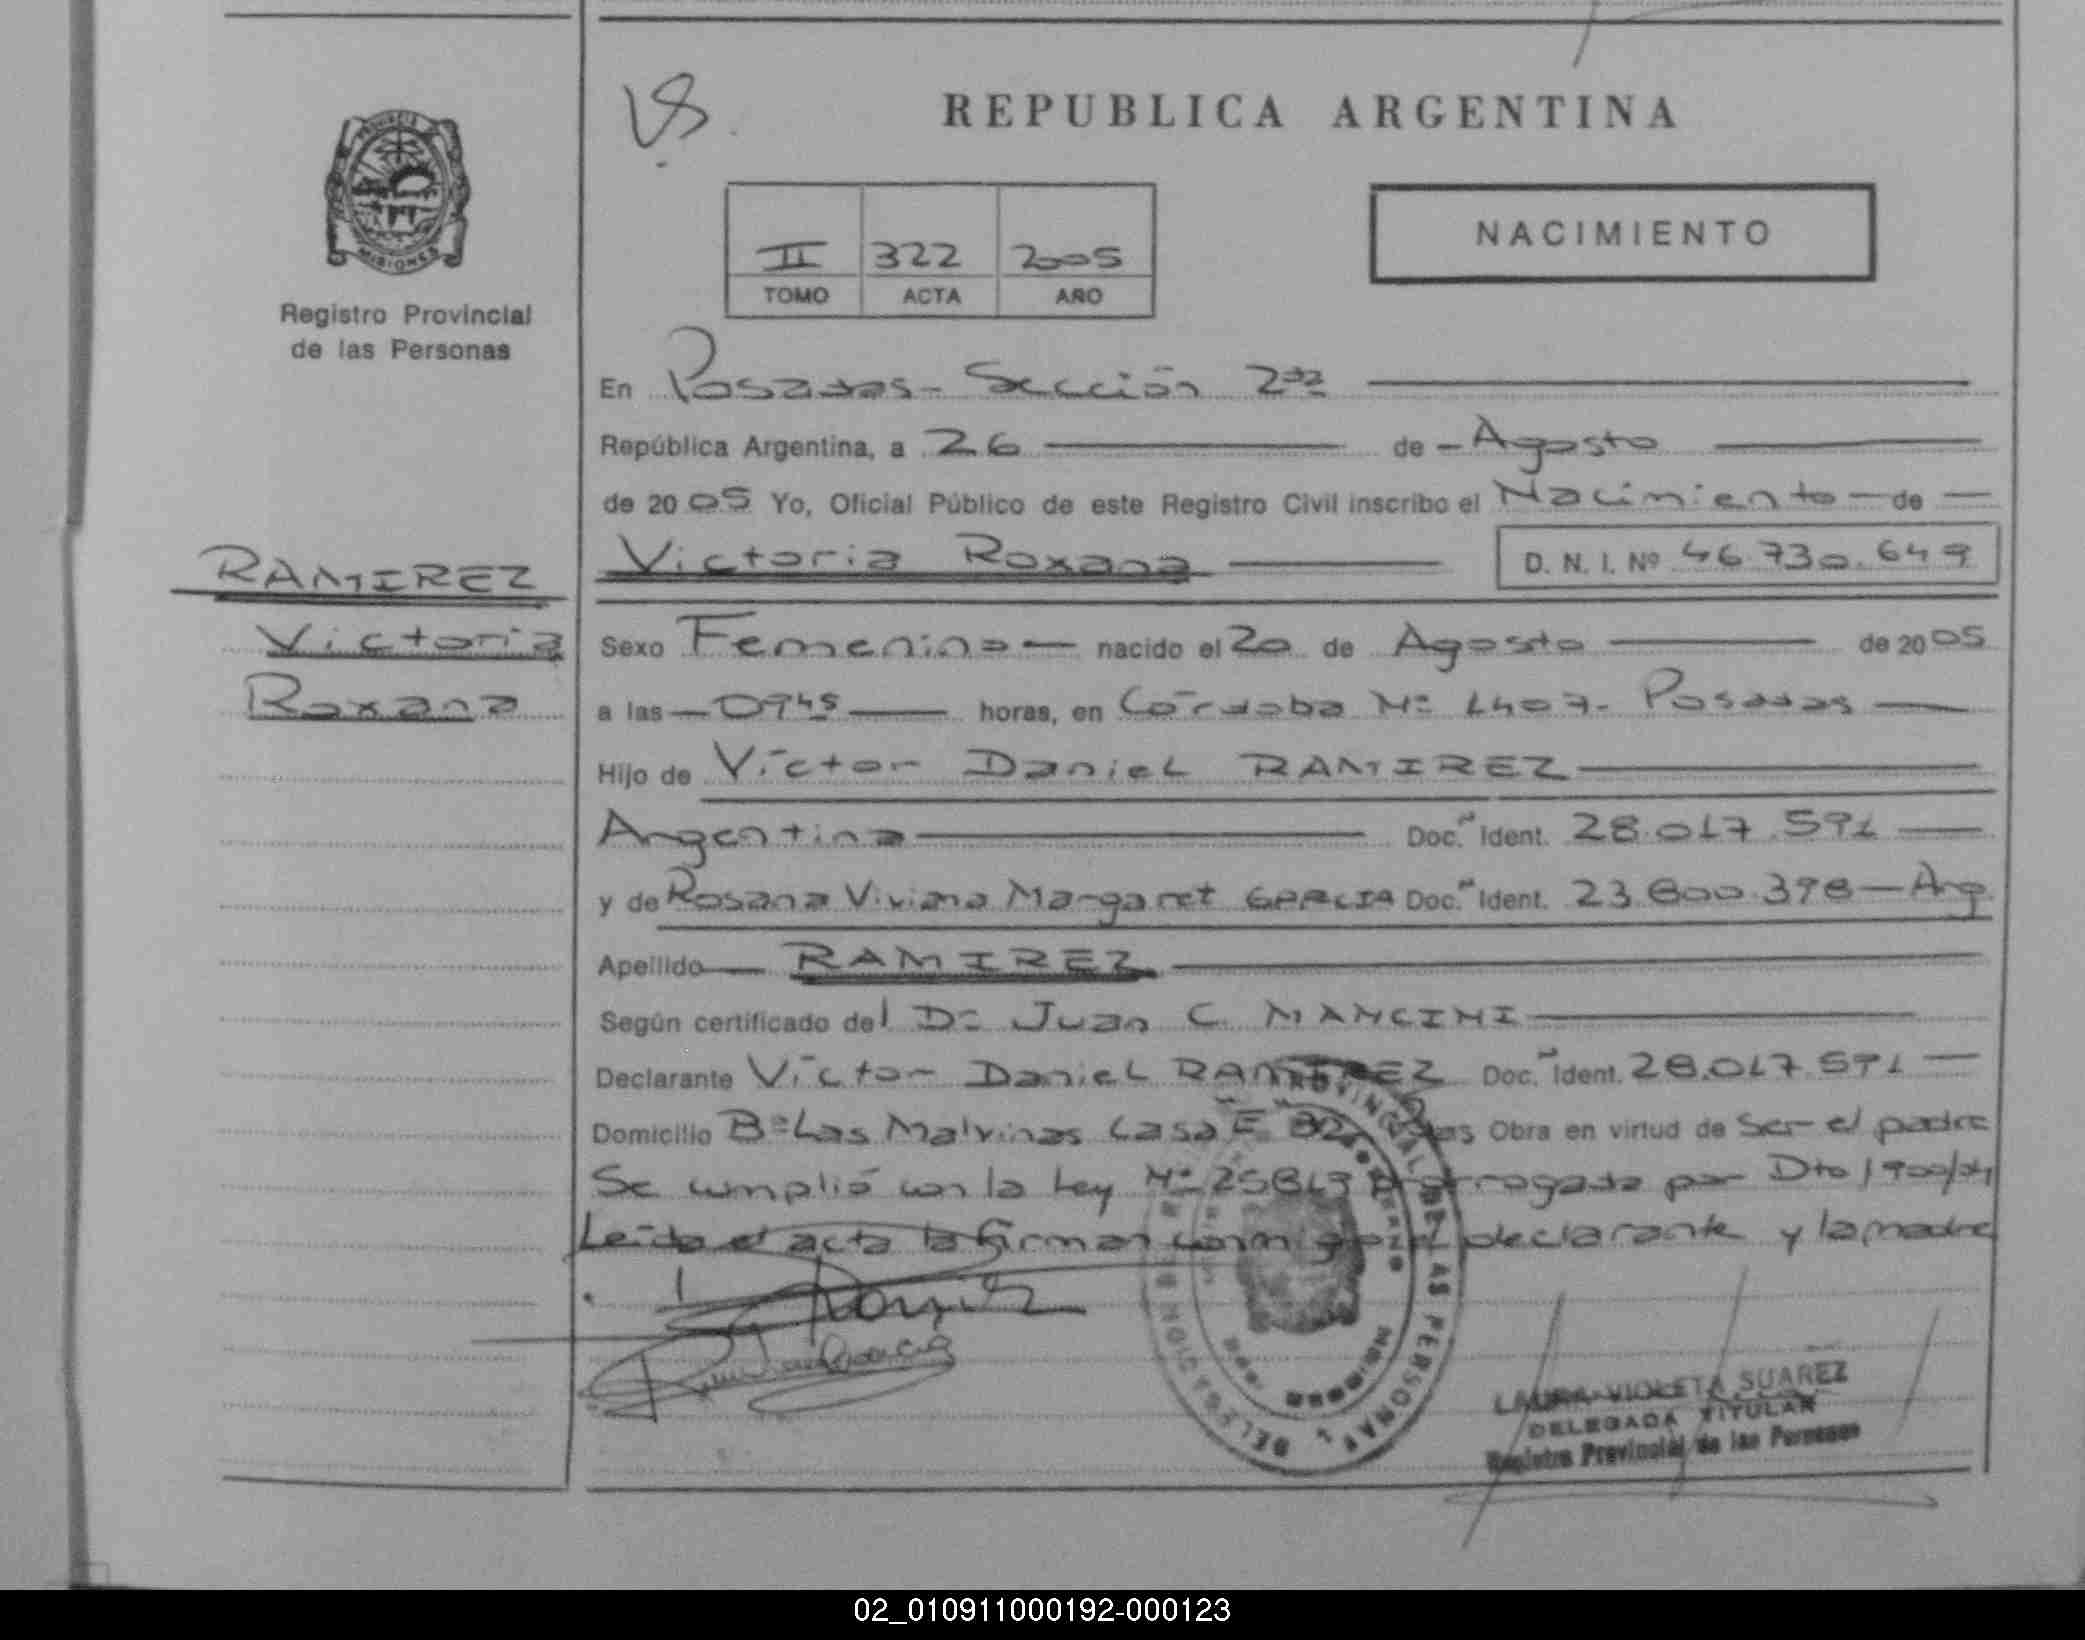 REPUBLICA ARGENTINA
PROVINCIA
MISIONES
Registro Provincial
de las Personas
NACIMIENTO
II 322 2005
TOMO ACTA AÑO
En Posadas - Sección 2da
República Argentina, a 26 de Agosto
de 2005 Yo, Oficial Público de este Registro Civil inscribo el Nacimiento de
Victoria Roxana D. N. I. Nº 46.730.649
RAMIREZ
Victoria
Roxana
Sexo Femenino nacido el 20 de Agosto de 2005
a las 0945 horas, en Córdoba Nº 1407- Posadas
Hijo de Víctor Daniel RAMIREZ
Argentina Doc. Ident. 28.017.591
y de Rosana Viviana Margaret GARCIA Doc. Ident. 23.800.398 - Arg.
Apellido RAMIREZ
Según certificado del Dr Juan C. MANCINI
Declarante Víctor Daniel RAMIREZ Doc. Ident. 28.017.591
Domicilio Bº Las Malvinas Casa E Obra en virtud de Ser el padre
Se cumplió con la Ley Nº 25813 por Dto 1900/04
Leída el acta la firman conmigo el declarante y la madre
LAURA VIOLETA SUAREZ
DELEGADA TITULAR
Registro Provincial de las Personas
02_010911000192-000123